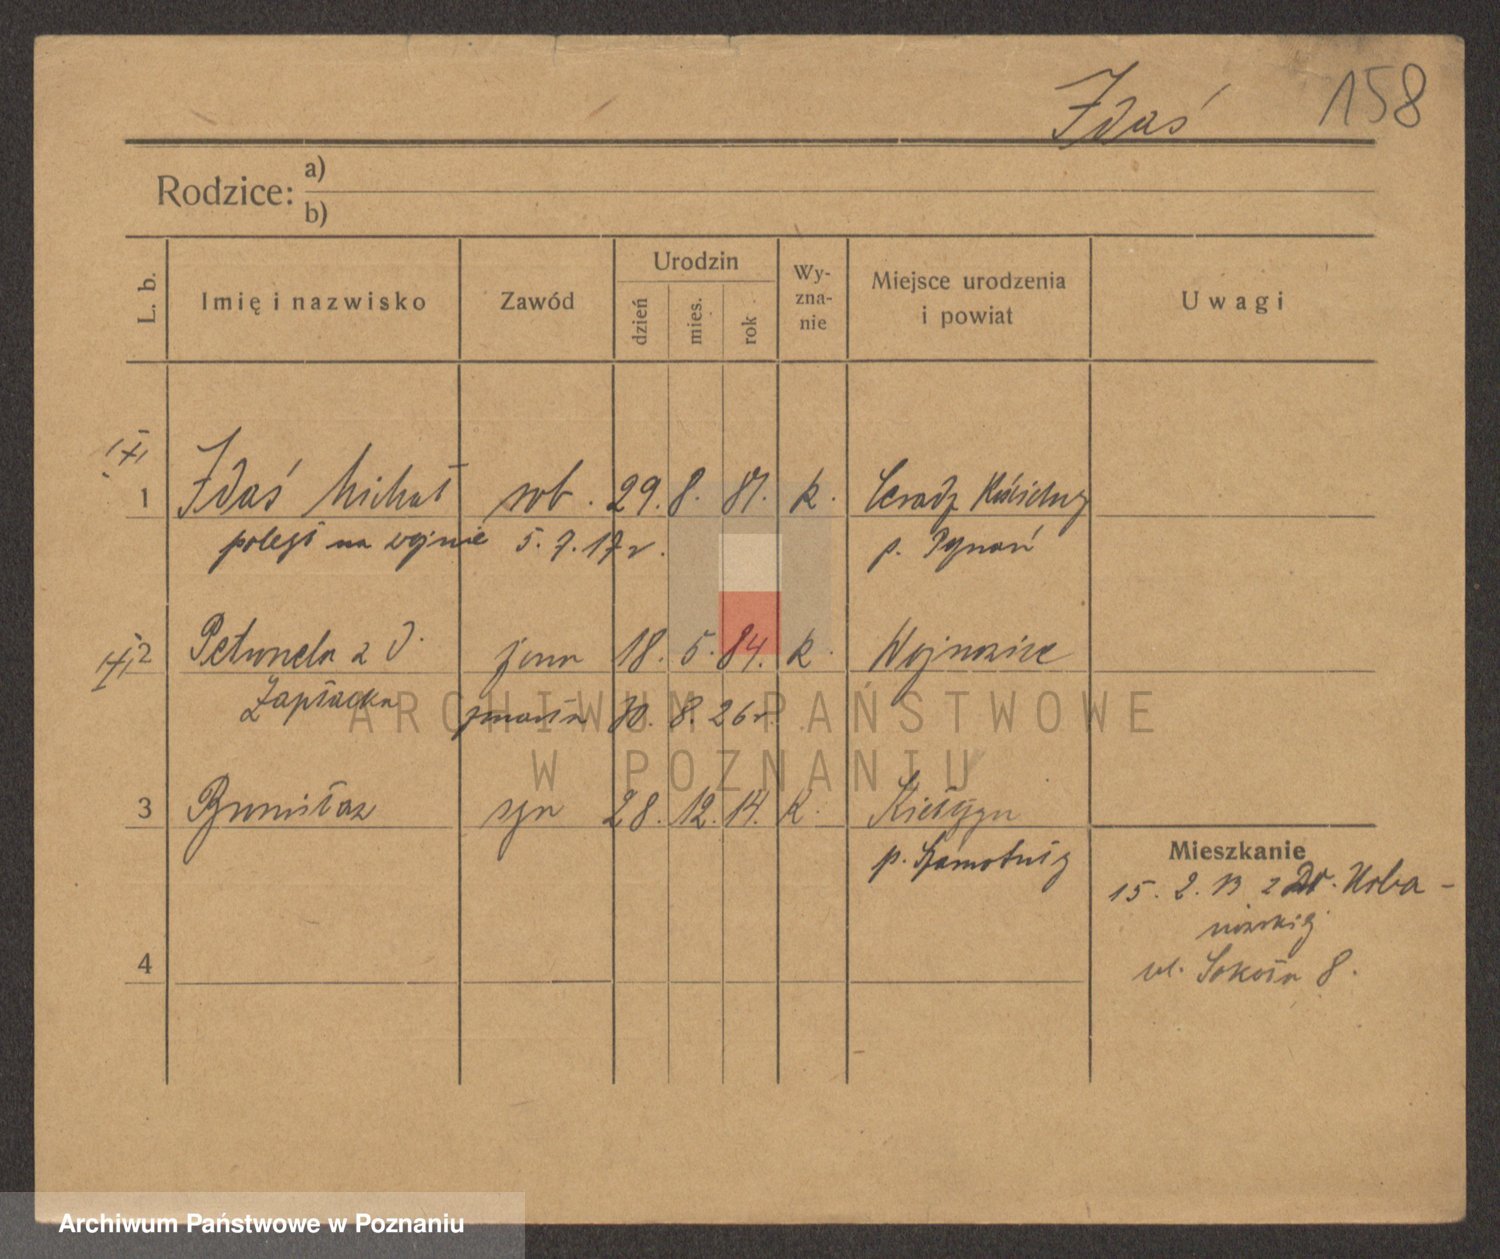 Idaś 158
Rodzice: a)
b)
L. b. Imię i nazwisko Zawód Urodzin dzień mies. rok Wy-zna-nie Miejsce urodzenia i powiat Uwagi
1 Idaś Michał rob. 29. 8. 81. k. Ceradz Kościelny
poległ na wojnie 5. 7. 17 r. p. Poznań
2 Petronela z d. żona 18. 5. 84. k. Wojnowice
Zapłacka zmarła 30. 8. 26 r.
3 Bronisław syn 28. 12. 14. k. Kiełczyn
p. Szamotuły
Mieszkanie
15. 2. 13 z Urba-
nowskiej
ul. Sokoła 8.
4
ARCHIWUM PAŃSTWOWE
W POZNANIU
Archiwum Państwowe w Poznaniu